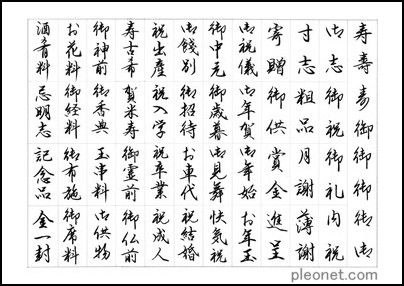 寿壽寿御御御御御
御志御祝御礼内祝
寸志粗品月謝薄謝
寄贈御供賞金進呈
御祝儀御年賀御年始お年玉
御中元御歳暮御見舞快気祝
御餞別御招待お車代祝結婚
祝出産祝入学祝卒業祝成人
寿古希賀米寿御霊前御仏前
御神前御香典玉串料御供物
お花料御経料御布施御席料
酒肴料忌明志記念品金一封
pleonet.com